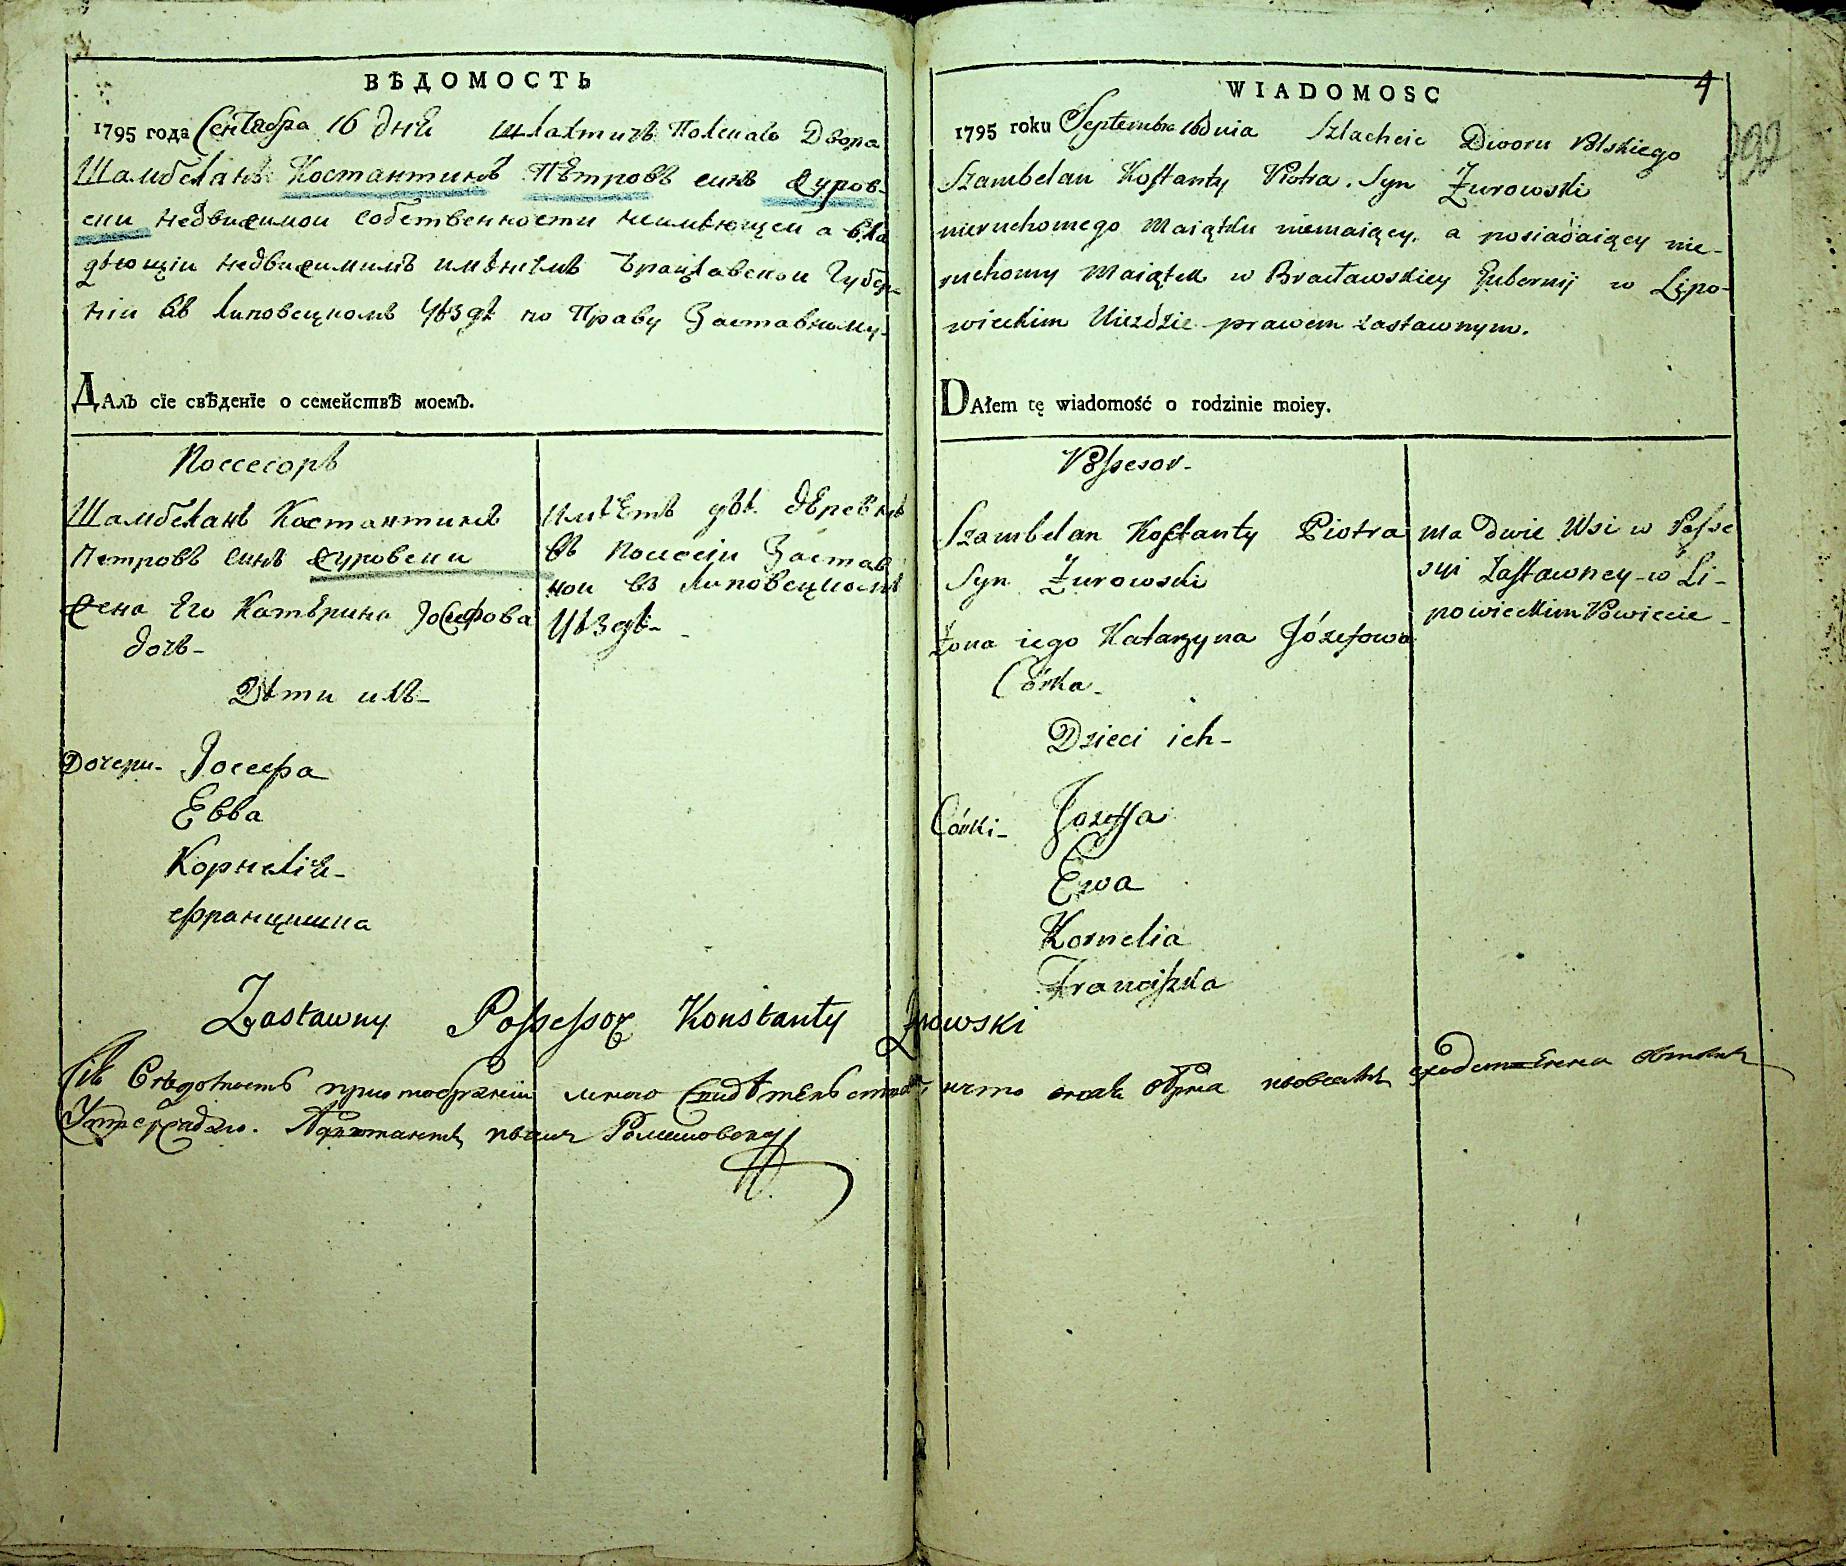 ВѢДОМОСТЬ
1795 года Сентября 16 дня Шлахтичъ Полскаго Двора
Шамбеланъ Костантинъ Пѣтровъ синъ Журов-
ски недвижимои собственности неимѣющеи а вла
дѣющіи недвижимимъ имѣніемъ Брацлавскои Губер-
ніи въ Липовецкомъ Уѣздѣ по Праву Заставному-
ДАлъ сїе свѣденїе о семействѣ моемъ.
Поссесоръ
Шамбеланъ Костантинъ
Петровъ синъ Журовски
Жена Его Катерина Іосифова
дочъ-
Дѣти ихъ-
Дочери- Іосефа
Евва
Корнелія-
Францишка
имѣетъ двѣ деревнѣ
въ посесіи Застав
нои въ Липовецкомъ
Уѣздѣ-
Zastawny Possessor Konstanty Żurowski
Сів
Утверждаю.
WIADOMOSC
4
1795 roku Septembra 16 Dnia Szlachcic Dworu Polskiego
392
Szambelan Kostanty Piotra Syn Żurowski
nieruchomego Maiątku niemaiący, a posiadaiący nie-
ruchomy Maiątek w Bracławskiey Gubernij w Lipo-
wieckim Uiezdzie prawem zastawnym.
DAłem tę wiadomość o rodzinie moiey.
Possesor-
Szambelan Kostanty Piotra
Syn Żurowski
Żona iego Katarzyna Józefowa
Córka-
Dzieci ich-
Córki- Jozeffa
Ewa
Kornelia
Franciszka
ma Dwie Wsi w Posse
syi Zastawney w Li-
powieckim Powiecie-